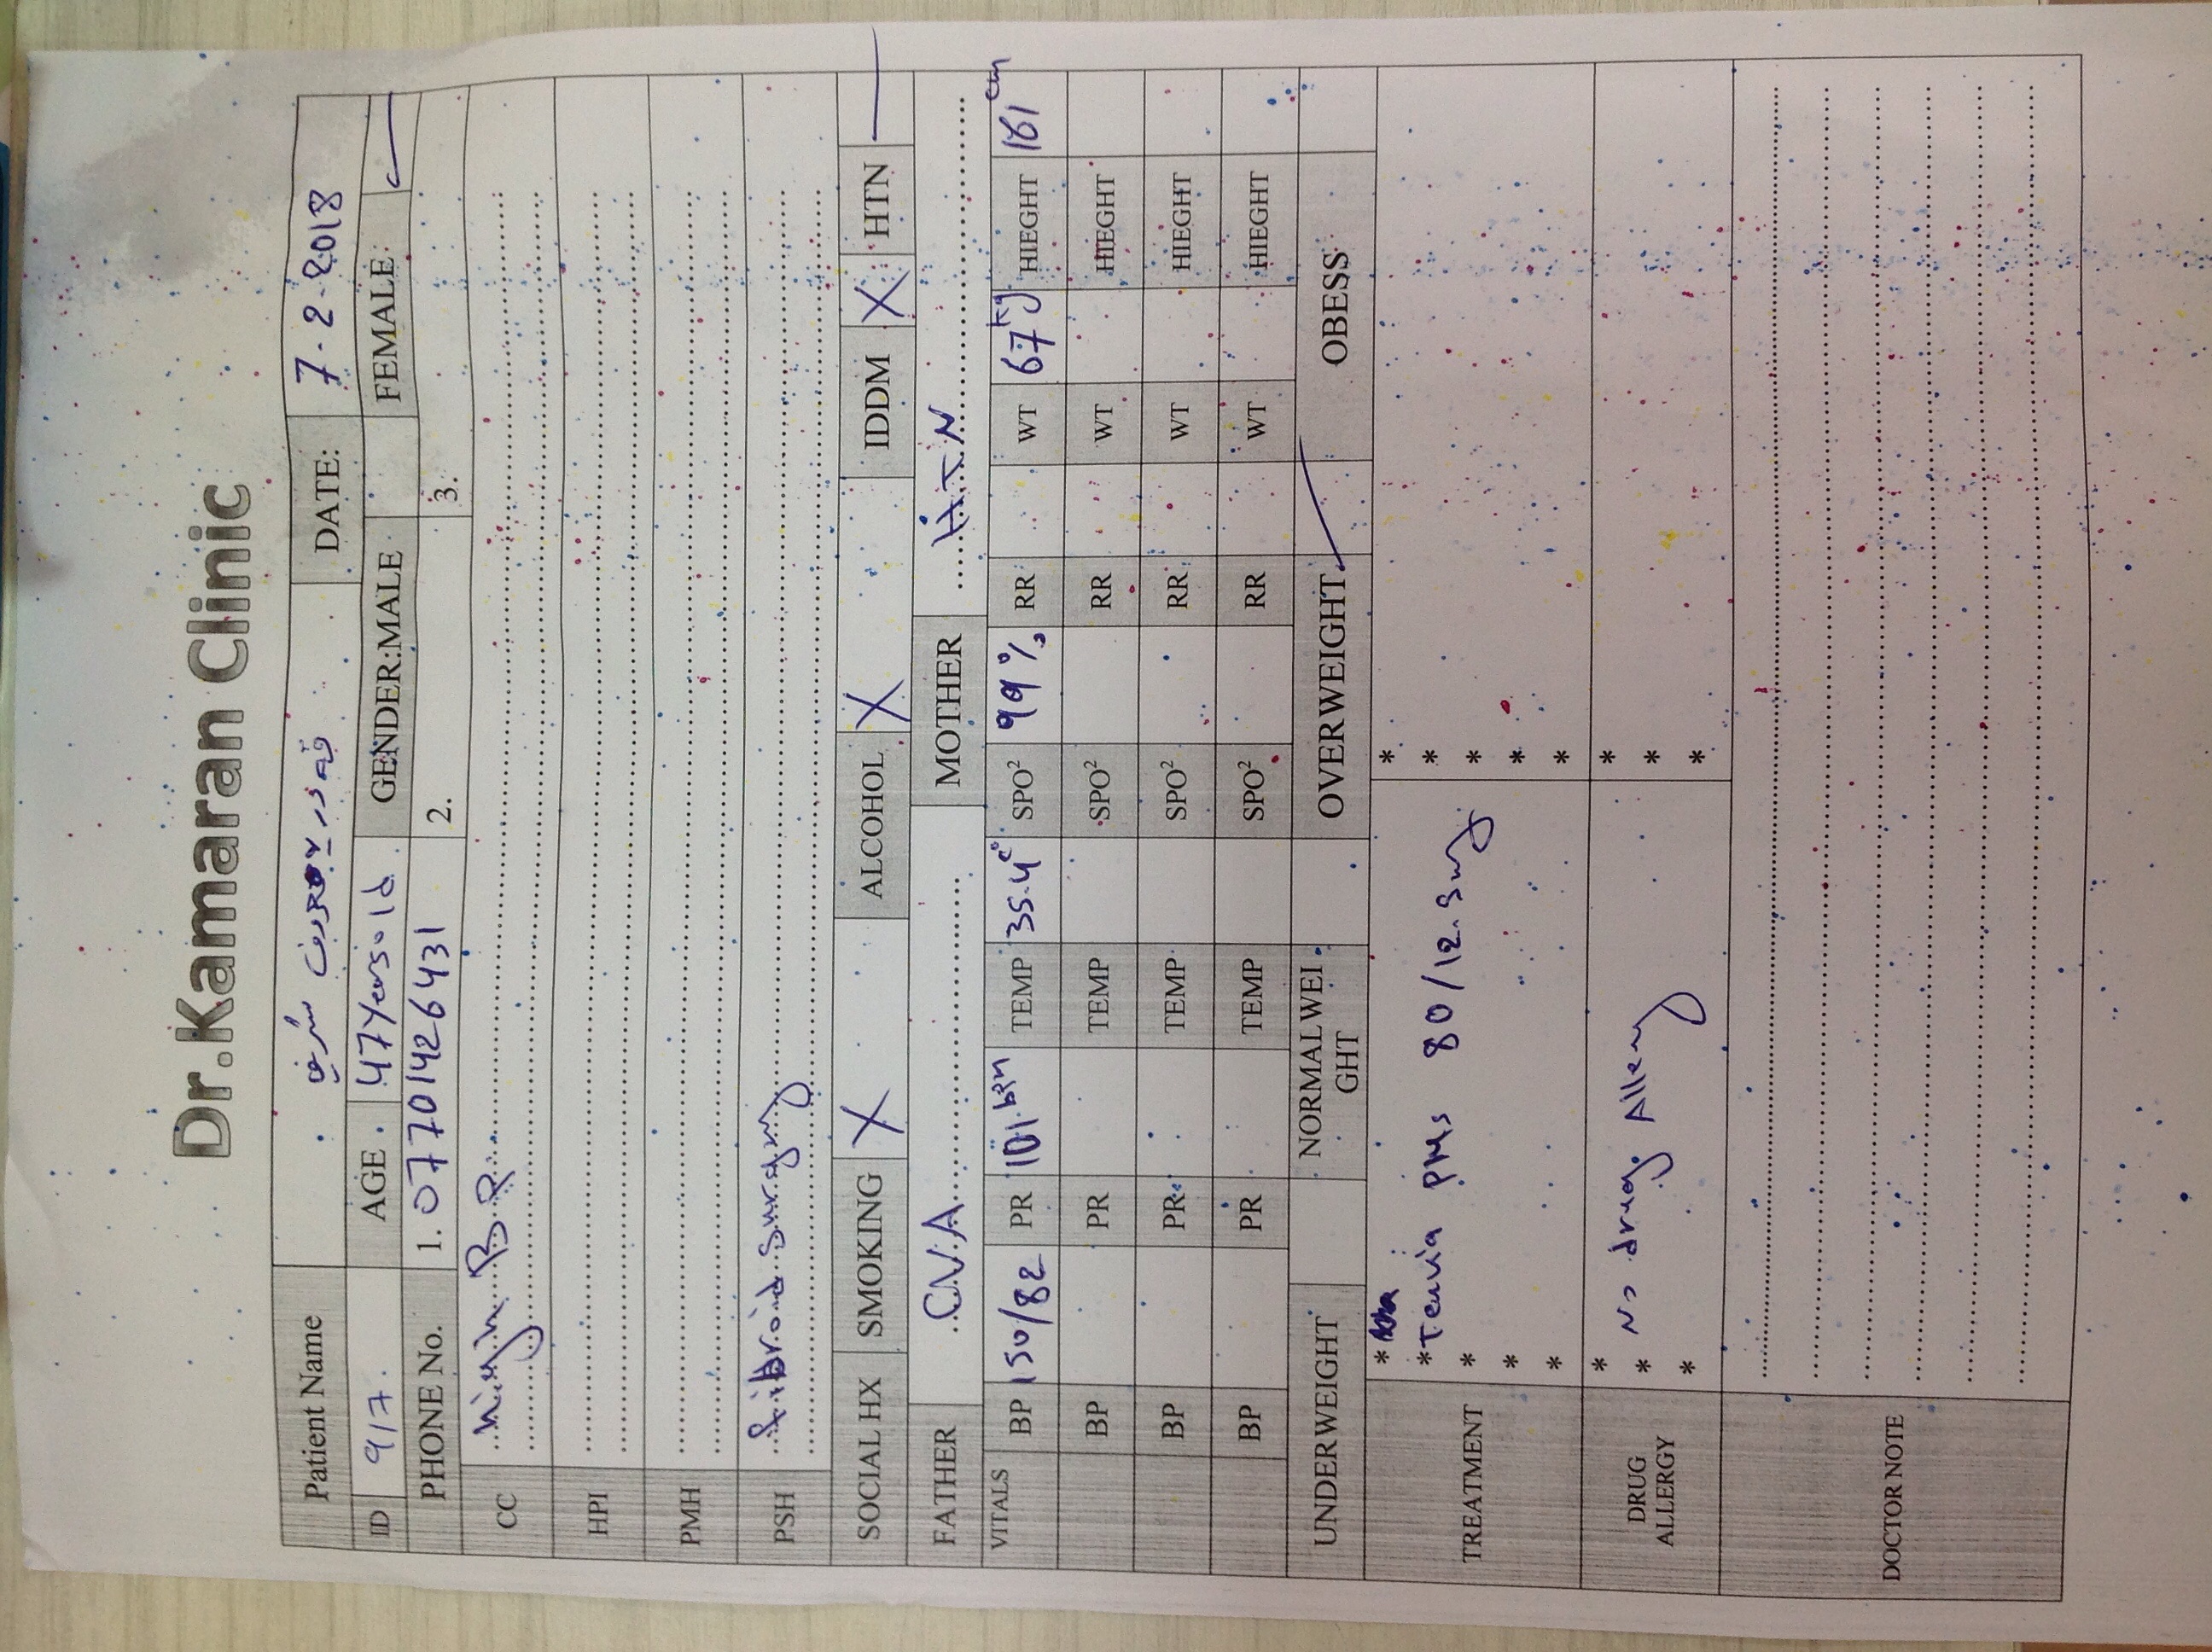 Dr.Kamaran Clinic
Patient Name شريف DATE: 7-2-2018
ID 917 AGE 47 Yers old GENDER:MALE FEMALE: ✓
PHONE No. 1. 07701426431 2. 3.
CC High B.P
HPI
PMH
PSH fibroid Suragry
SOCIAL HX SMOKING X ALCOHOL X IDDM X HTN —
FATHER C.V.A MOTHER H.T.N
VITALS BP 150/82 PR 101 bpm TEMP 35.4 c° SPO² 99% RR WT 67 kg HIEGHT 161 cm
BP PR TEMP SPO² RR WT HIEGHT
BP PR TEMP SPO² RR WT HIEGHT
BP PR TEMP SPO² RR WT HIEGHT
UNDERWEIGHT NORMAL WEIGHT OVERWEIGHT ✓ OBESS
TREATMENT * *
* 80/12.5mg *
* *
* *
* *
DRUG ALLERGY * *
* No drug Allergy *
* *
DOCTOR NOTE